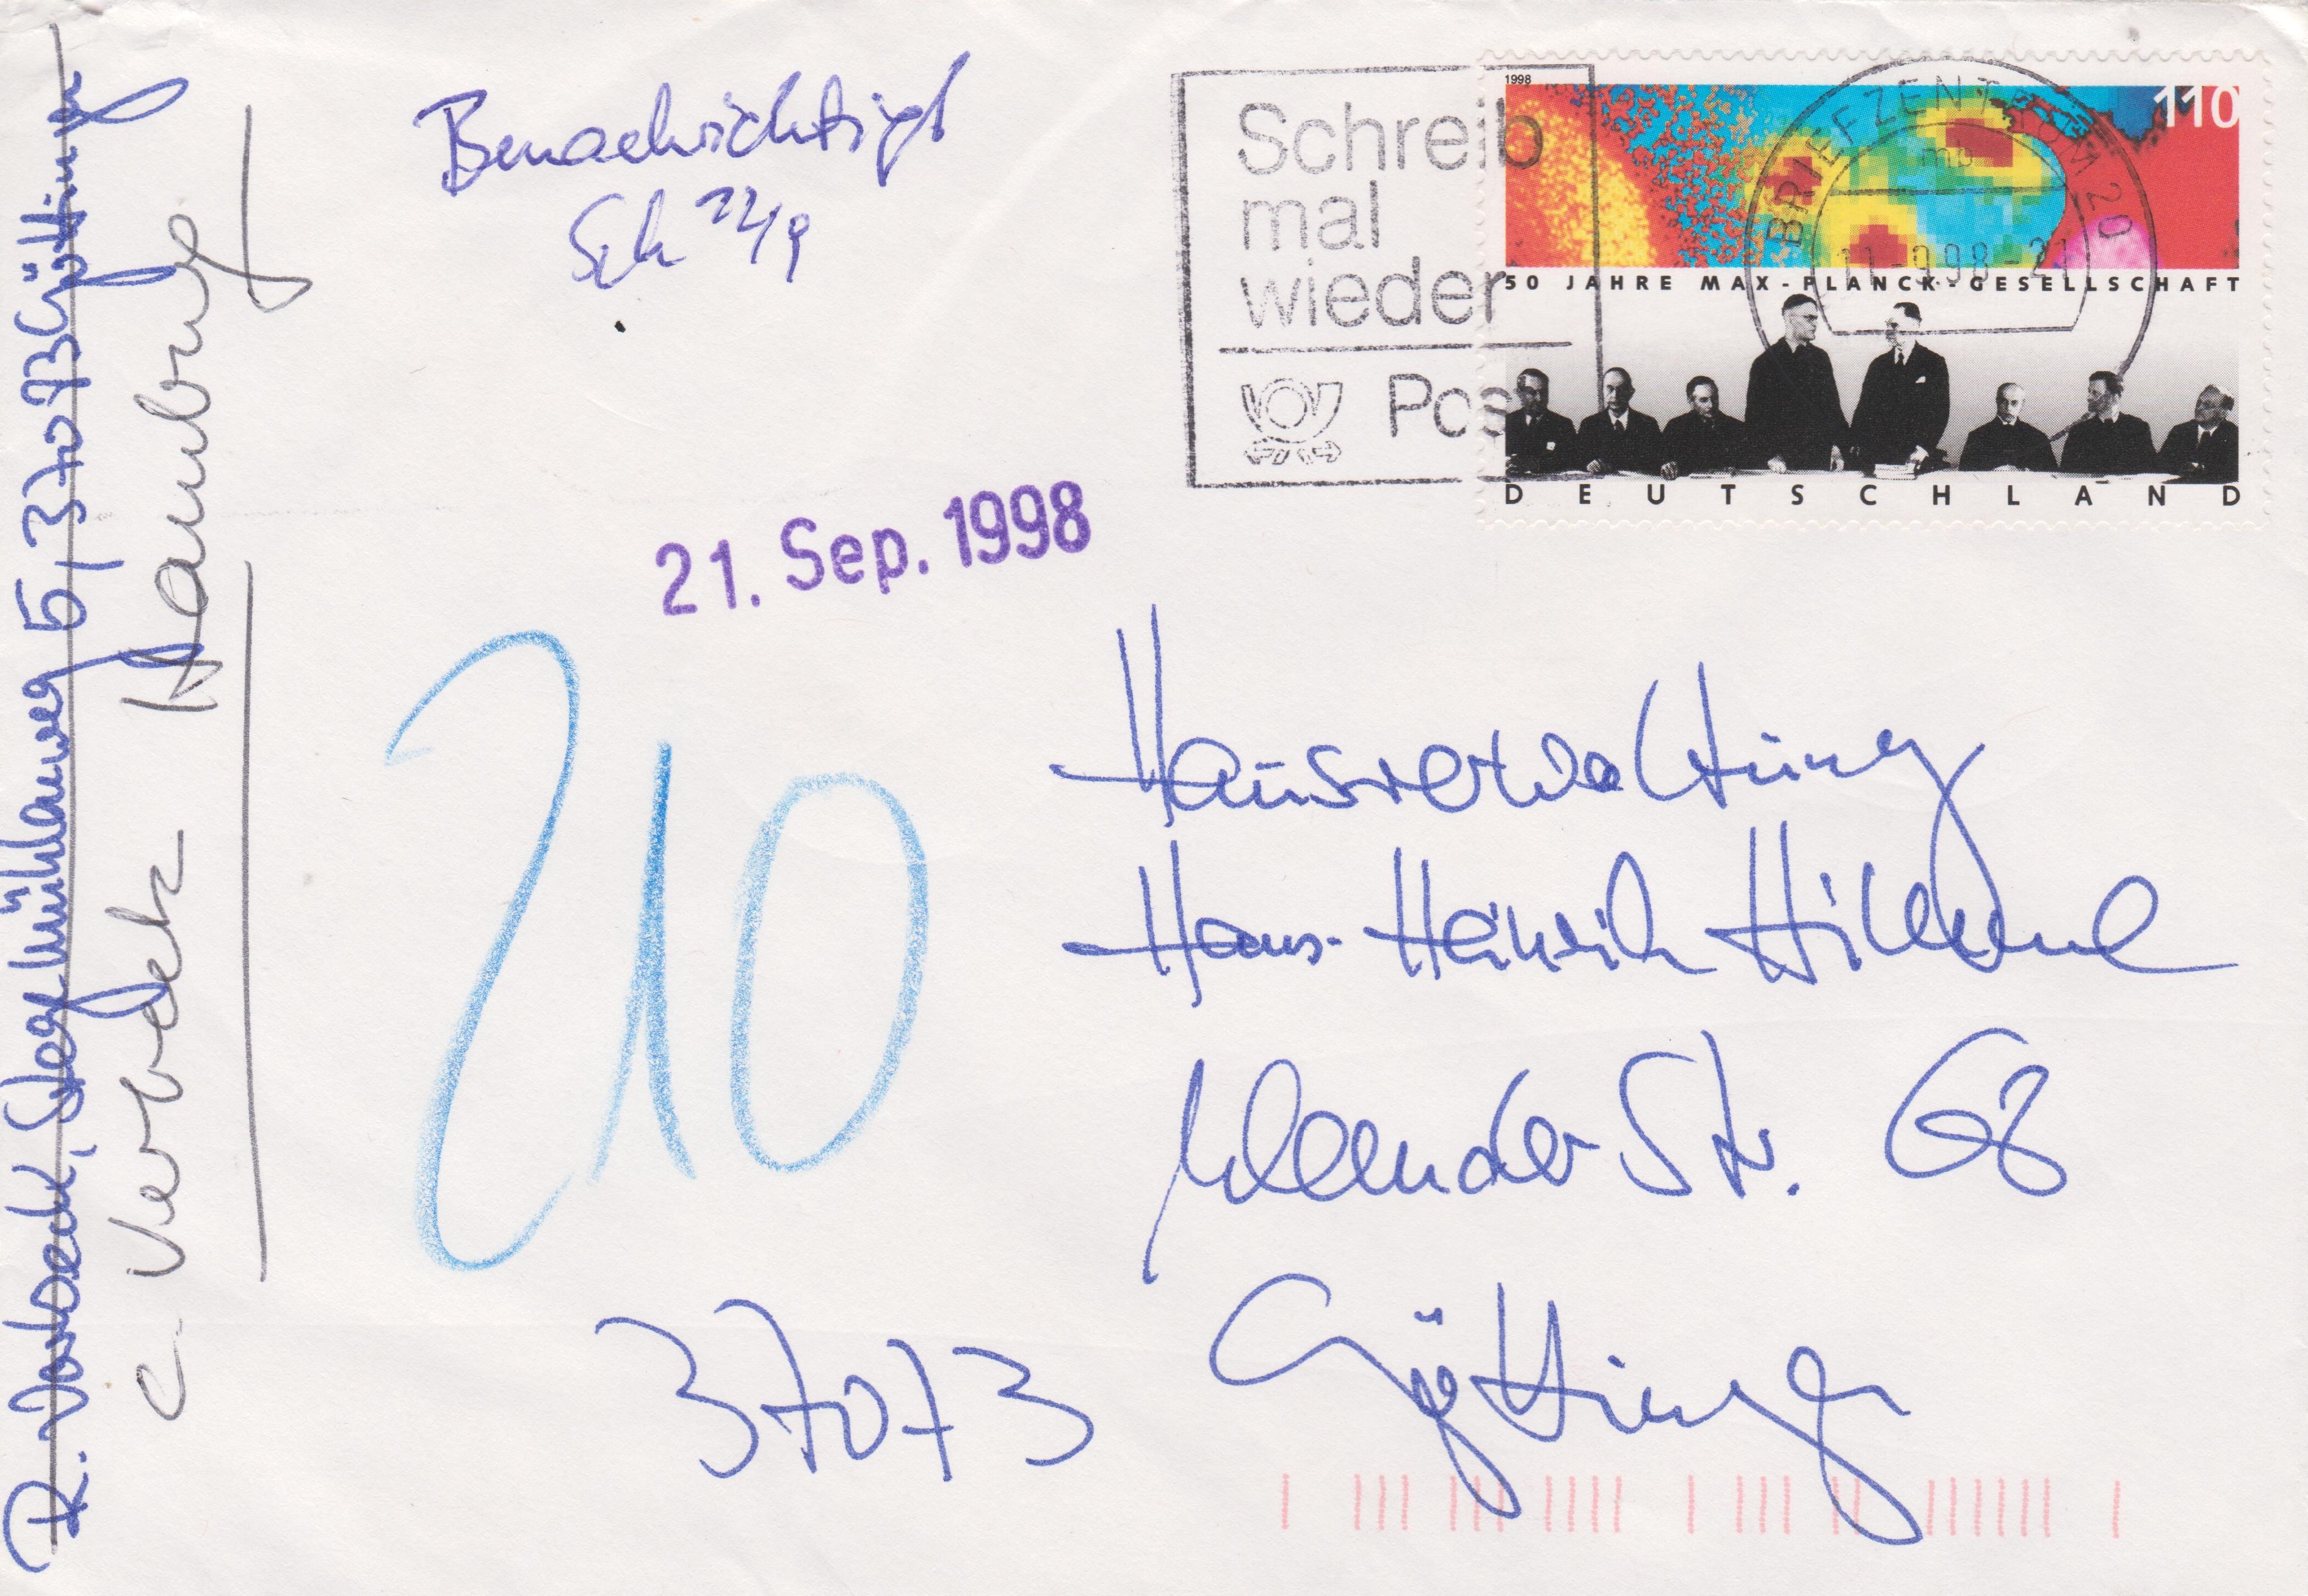 R. Verbeck, Stegemühlenweg 5, 37073 Göttingen
C. Verbeck Hamburg
Benachrichtigt
Sch 22/9
Schreib
mal
wieder
Post
1998
110
BRIEFZENTRUM 20
mb
11.-9.98-21
50 JAHRE MAX-PLANCK-GESELLSCHAFT
DEUTSCHLAND
21. Sep. 1998
210
Hausverwaltung
Hans-Heinrich
Weender Str. 68
37073 Göttingen